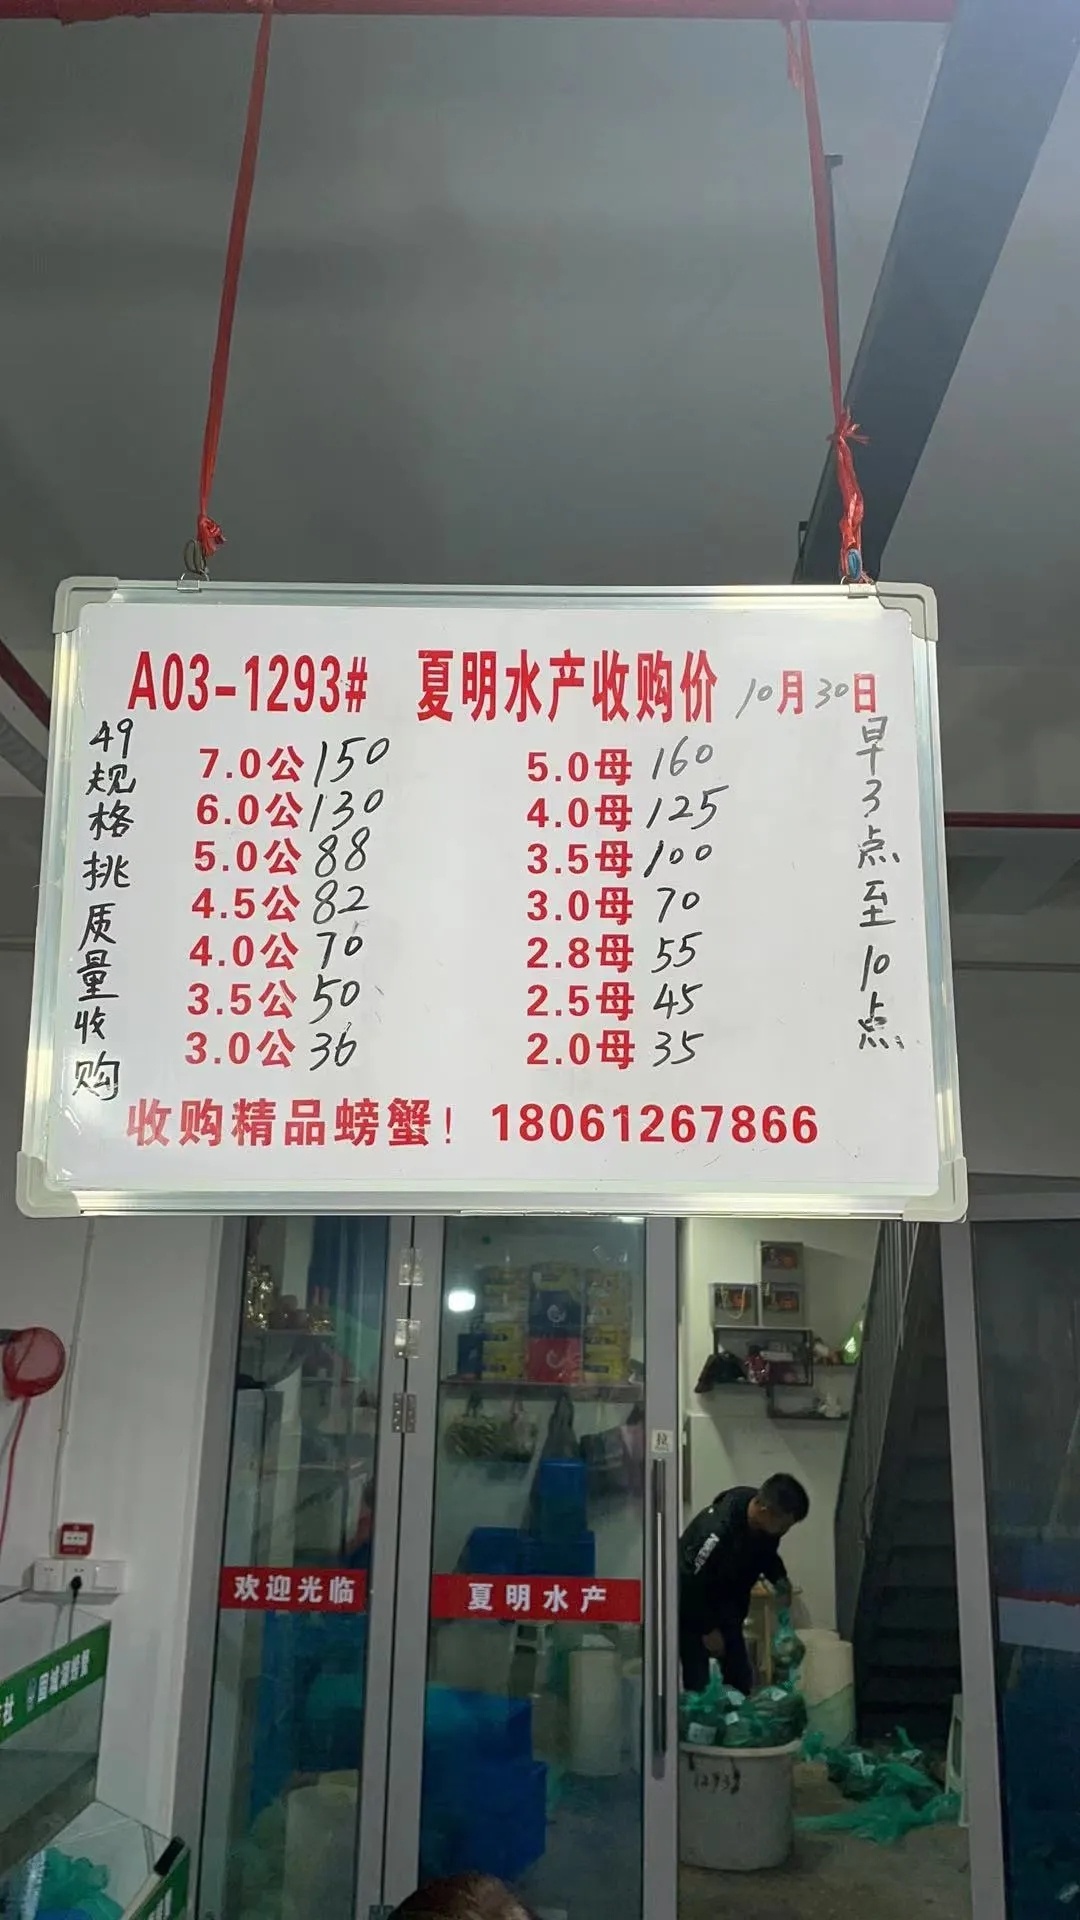 A03-1293# 夏明水产收购价 10月30日
49规格挑质量收购
7.0公 150 5.0母 160
6.0公 130 4.0母 125
5.0公 88 3.5母 100
4.5公 82 3.0母 70
4.0公 70 2.8母 55
3.5公 50 2.5母 45
3.0公 36 2.0母 35
早3点至10点
收购精品螃蟹！18061267866
欢迎光临
夏明水产
拉
固城湖螃蟹
社
1293